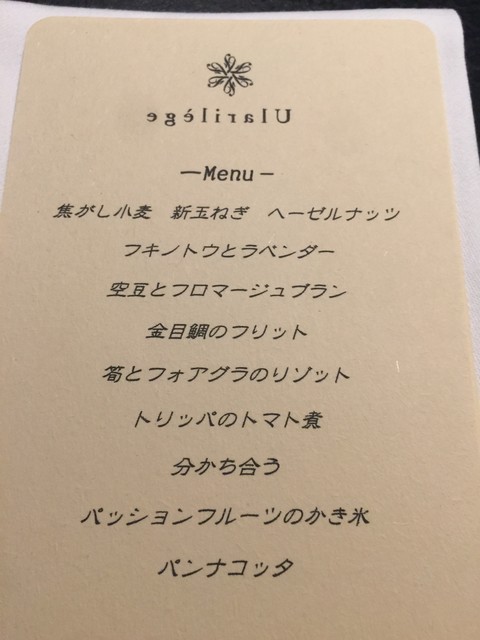 Ularilége
ーMenuー
焦がし小麦　新玉ねぎ　ヘーゼルナッツ
フキノトウとラベンダー
空豆とフロマージュブラン
金目鯛のフリット
筍とフォアグラのリゾット
トリッパのトマト煮
分かち合う
パッションフルーツのかき氷
パンナコッタ